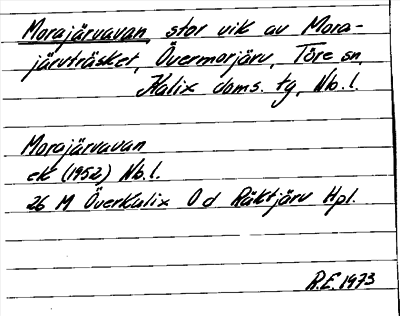 Morajärvavan, stor vik av Mora-
järvträsket, Övermorjärv, Töre sn,
Kalix doms. tg, Nb.l.
Morajärvavan
ek (1952) Nb.l.
26 M Överkalix Od Räktjärv Hpl.
R.E. 1973